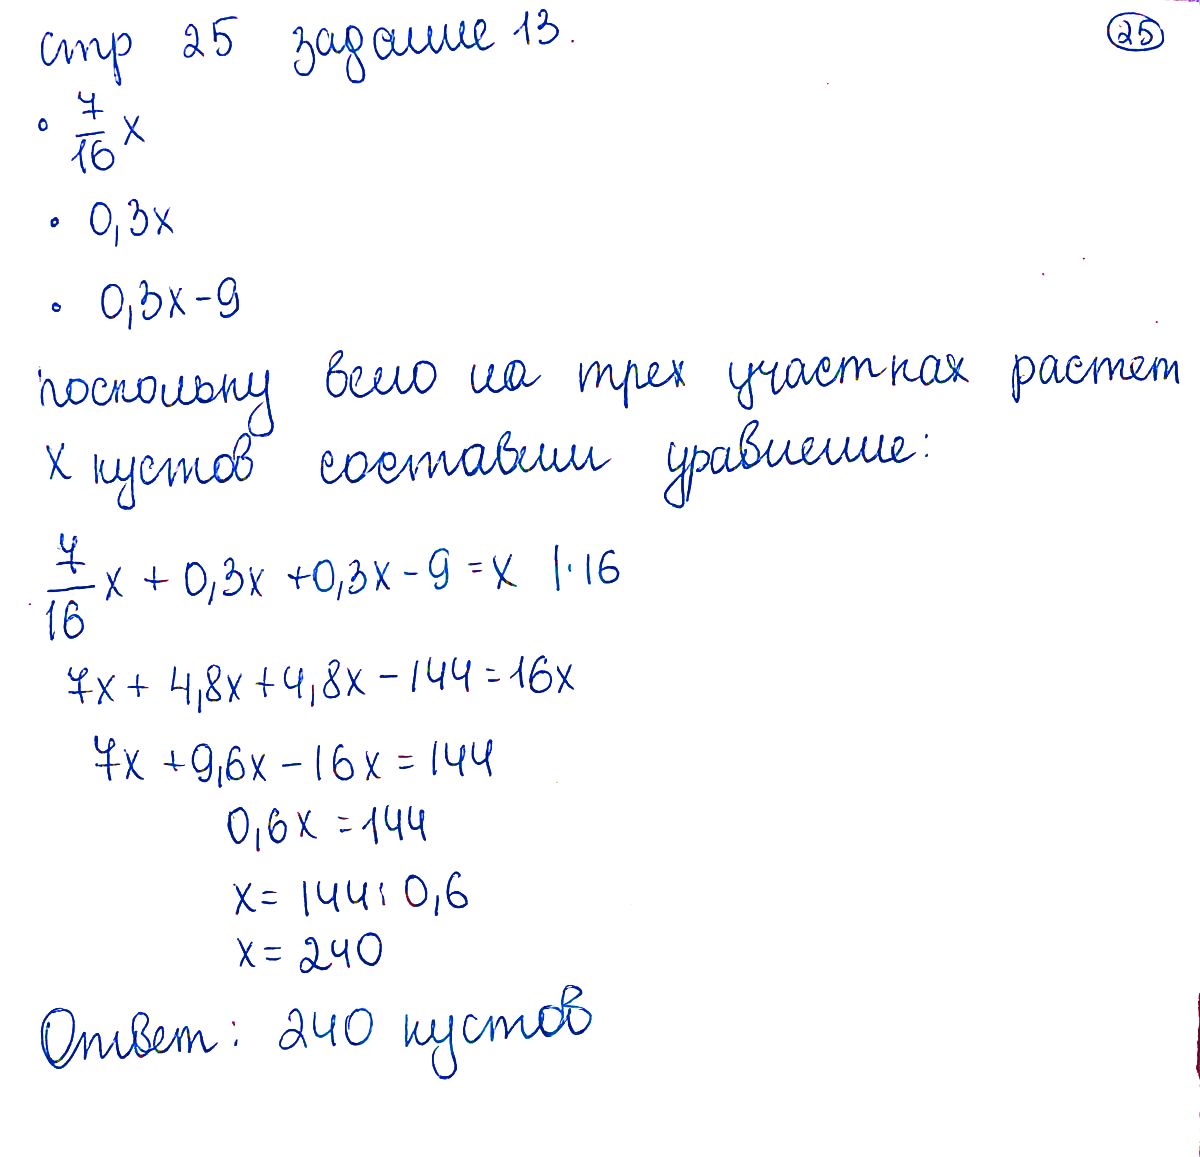 стр 25 задание 13.
25
• 7/16 x
• 0,3x
• 0,3x-9
поскольку всего на трех участках растет
x кустов составим уравнение:
7/16 x + 0,3x + 0,3x - 9 = x |·16
7x + 4,8x + 4,8x - 144 = 16x
7x + 9,6x - 16x = 144
0,6x = 144
x = 144 : 0,6
x = 240
Ответ: 240 кустов